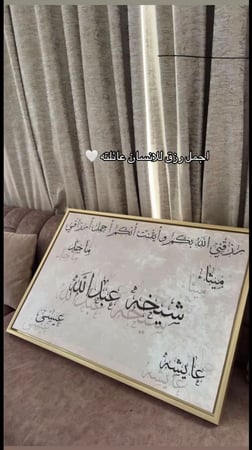 اجمل رزق للانسان عائلته 🤍
رزقني الله بكم وأيقنت أنكم أجمل أرزاقي
ماجد
ميثاء
شيخه عبدالله
عايشه